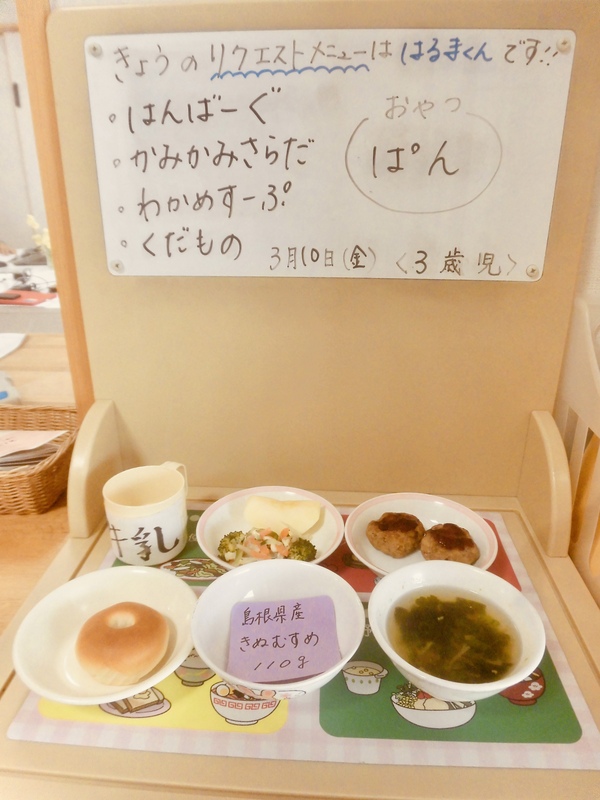 きょうのリクエストメニューははるまくんです!!
・はんばーぐ
・かみかみさらだ
・わかめすーぷ
・くだもの
おやつ
ぱん
3月10日(金) 〈3歳児〉
牛乳
島根県産
きぬむすめ
110g